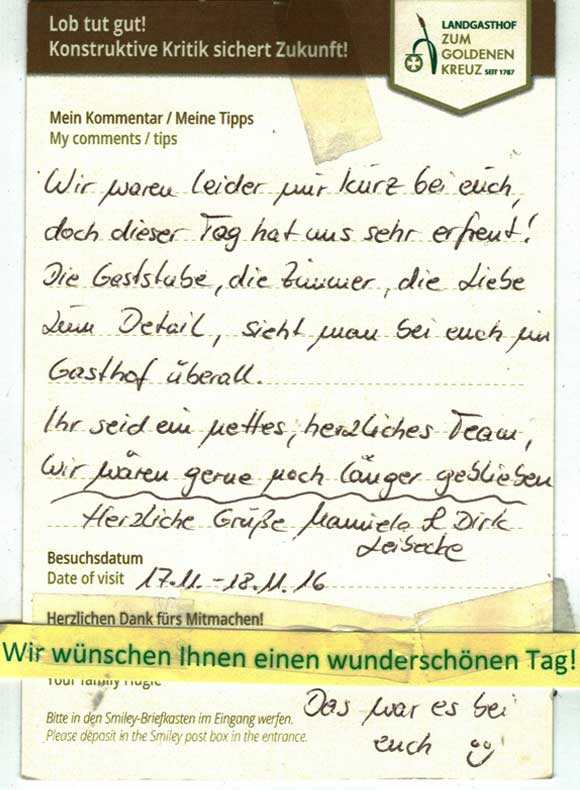 Lob tut gut!
Konstruktive Kritik sichert Zukunft!
LANDGASTHOF
ZUM
GOLDENEN
KREUZ SEIT 1787
Mein Kommentar / Meine Tipps
My comments / tips
Wir waren leider nur kurz bei euch,
doch dieser Tag hat uns sehr erfreut!
Die Gaststube, die Zimmer, die Liebe
zum Detail, sieht man bei euch im
Gasthof überall.
Ihr seid ein nettes, herzliches Team,
wir wären gerne noch länger geblieben
Herzliche Grüße Manuela & Dirk
Leibecke
Besuchsdatum
Date of visit 17.11.-18.11.16
Herzlichen Dank fürs Mitmachen!
Wir wünschen Ihnen einen wunderschönen Tag!
Your family Hugle
Bitte in den Smiley-Briefkasten im Eingang werfen.
Please deposit in the Smiley post box in the entrance.
Das war es bei
euch